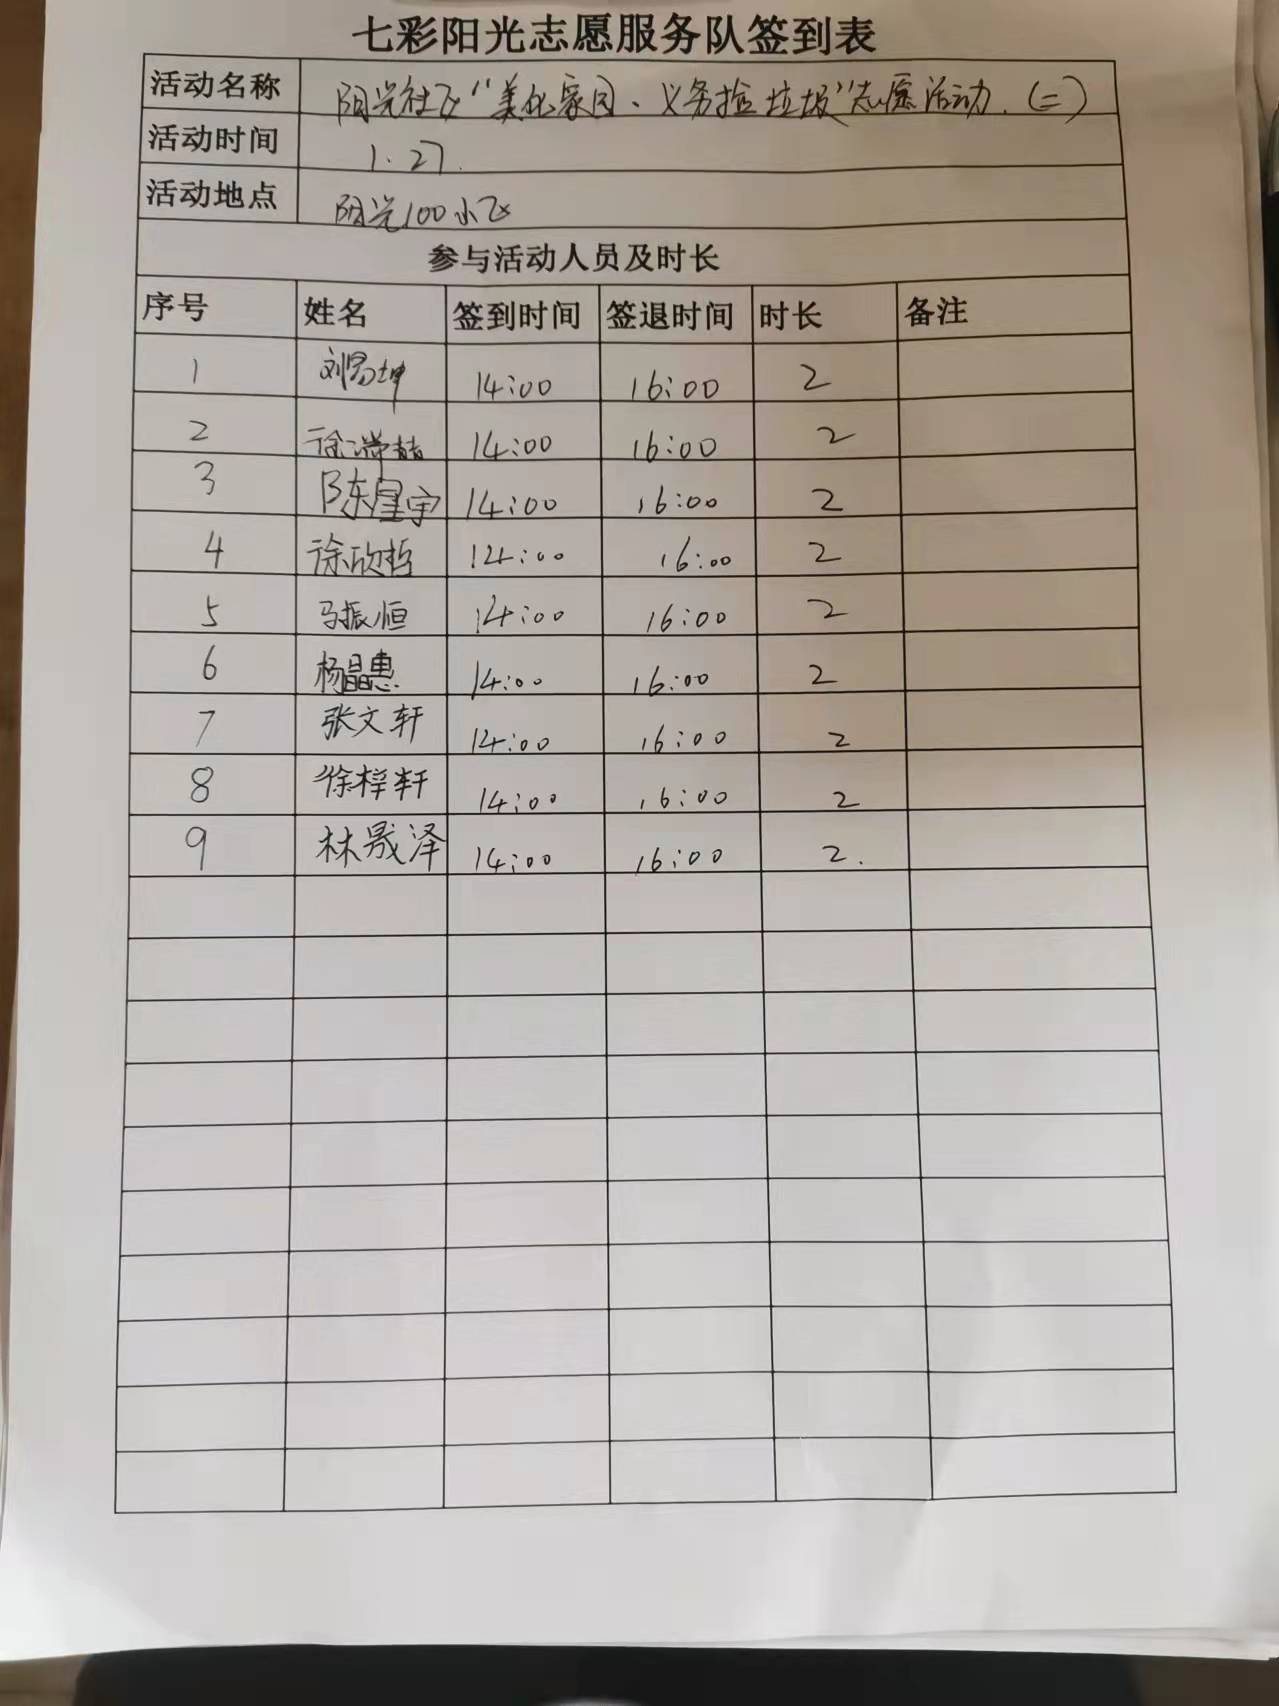 七彩阳光志愿服务队签到表
活动名称 阳光社区“美化家园、义务捡垃圾”志愿活动.(二)
活动时间 1.27.
活动地点 阳光100小区
参与活动人员及时长
序号 姓名 签到时间 签退时间 时长 备注
1 刘易坤 14:00 16:00 2
2 徐 14:00 16:00 2
3 陈星宇 14:00 16:00 2
4 徐欣哲 14:00 16:00 2
5 马振恒 14:00 16:00 2
6 杨晶惠 14:00 16:00 2
7 张文轩 14:00 16:00 2
8 徐梓轩 14:00 16:00 2
9 林晟泽 14:00 16:00 2.